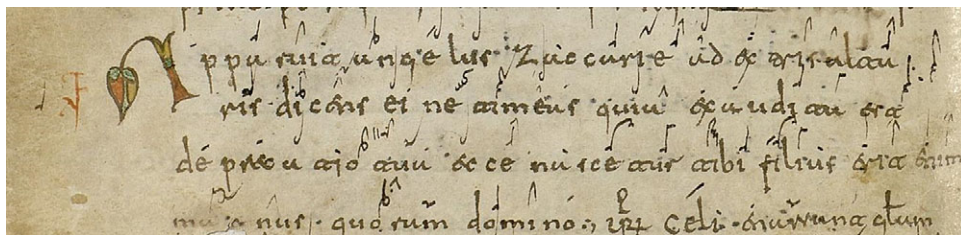 Apparuit angelus zaccarie ad extris alta
ris dicens ei ne timeas quia exaudita est
deprecatio tua ecce nascetur tibi filius erit enim
magnus quorum domino Celi enarrant glam